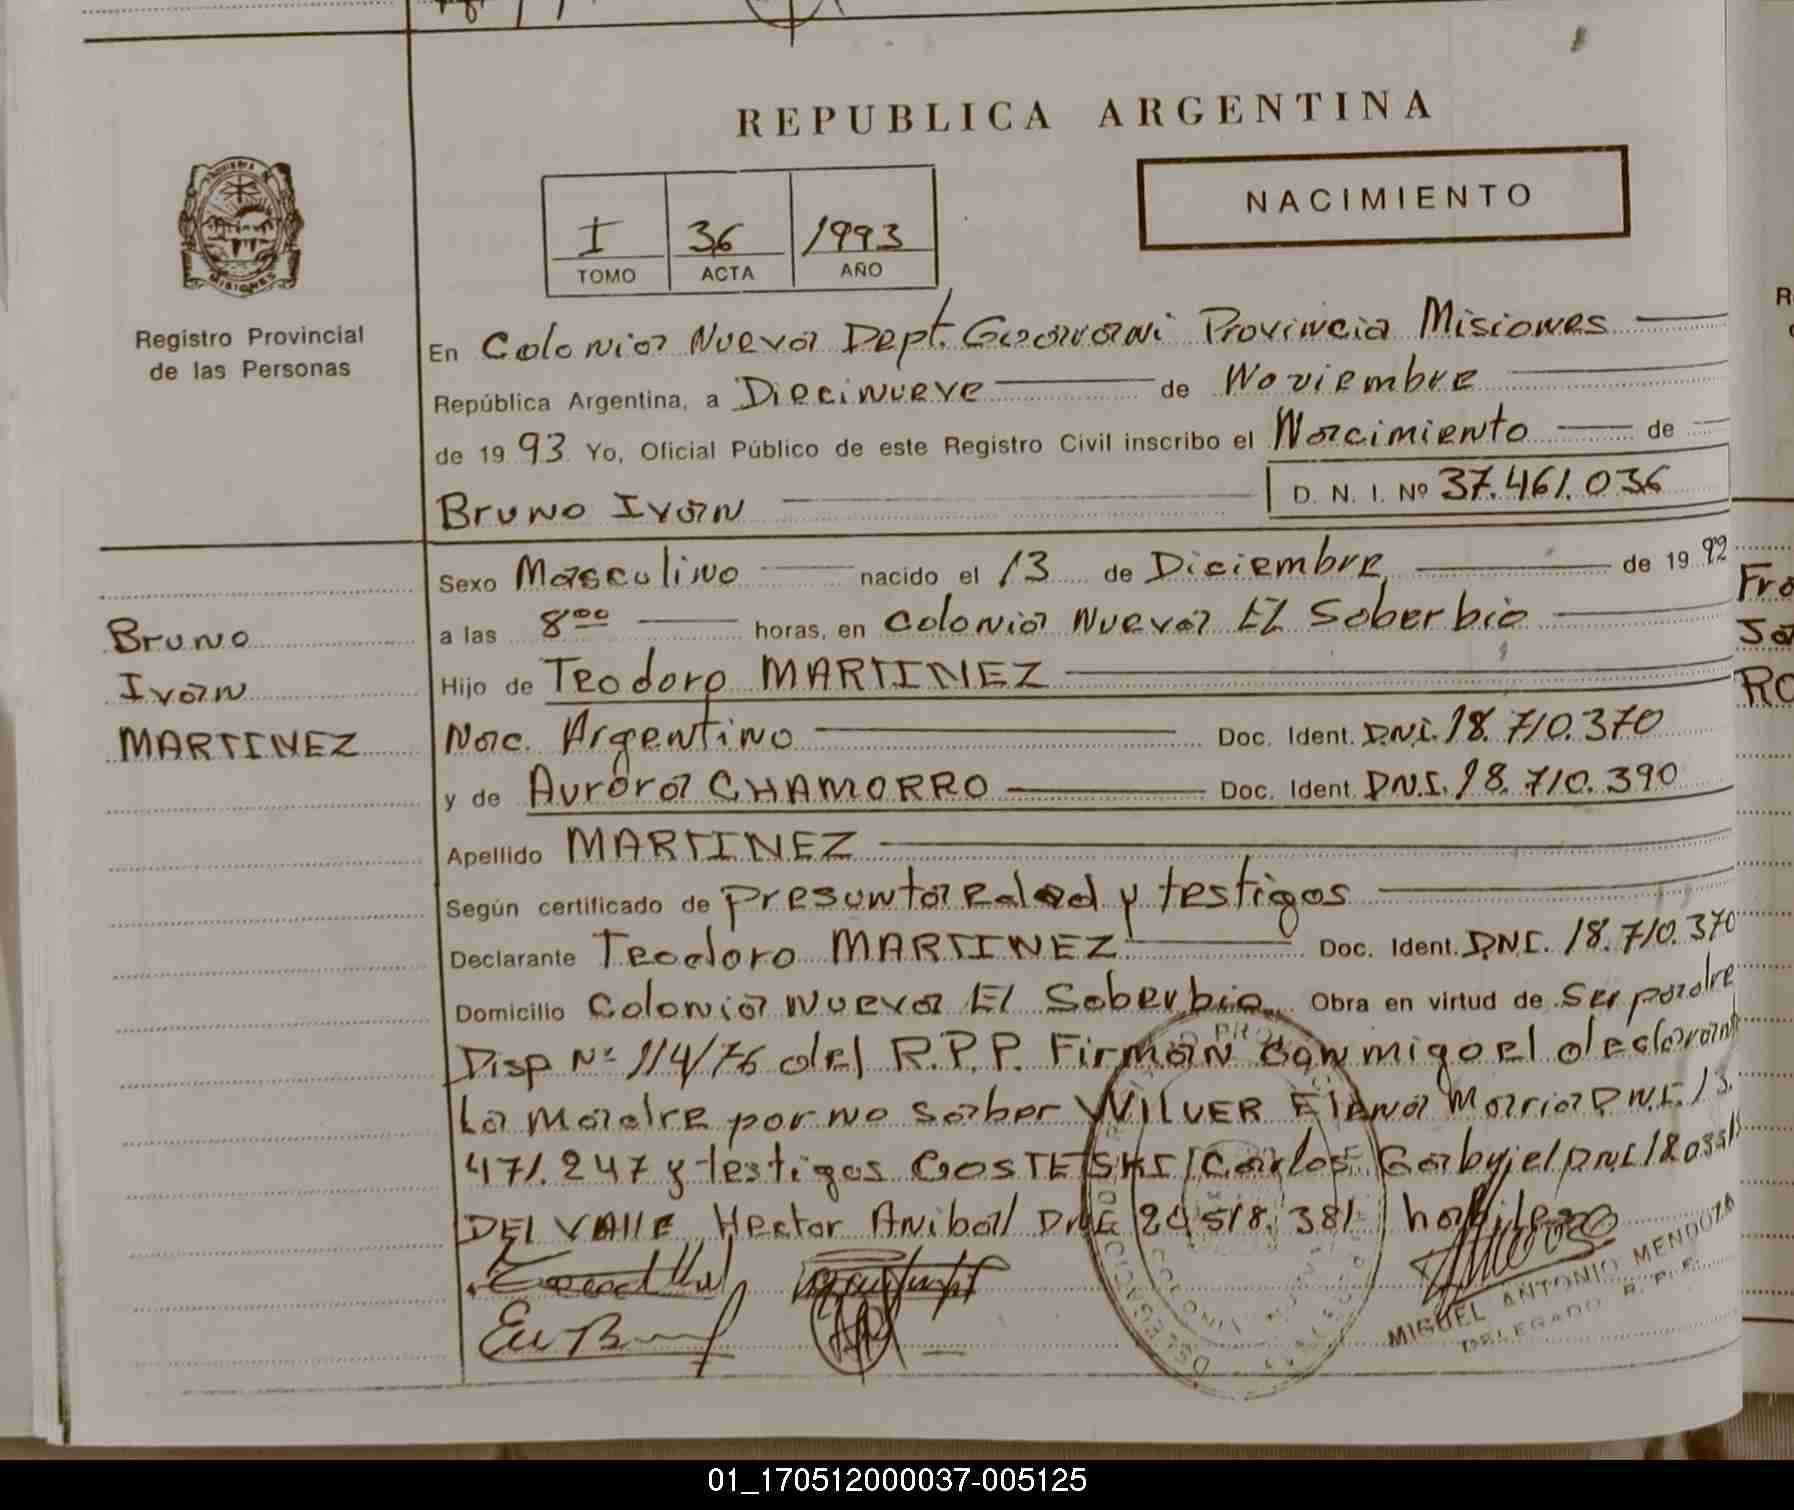 REPUBLICA ARGENTINA
NACIMIENTO
I 36 1993
TOMO ACTA AÑO
MISIONES
Registro Provincial
de las Personas
En Colonia Nueva Dept. Guarani Provincia Misiones
República Argentina, a Diecinueve de Noviembre
de 1993 Yo, Oficial Público de este Registro Civil inscribo el Nacimiento de
Bruno Ivan D. N. I. Nº 37.461.036
Sexo Masculino nacido el 13 de Diciembre de 1992
a las 8 00 horas, en Colonia Nueva El Soberbio
Hijo de Teodoro MARTINEZ
Nac. Argentino Doc. Ident. D.N.I. 18.710.370
y de Aurora CHAMORRO Doc. Ident. D.N.I. 18.710.390
Apellido MARTINEZ
Según certificado de presunta edad y testigos
Declarante Teodoro MARTINEZ Doc. Ident. D.N.I. 18.710.370
Domicilio Colonia Nueva El Soberbio Obra en virtud de ser padre
Disp Nº 114/76 del R.P.P. Firman conmigo el declarant
La madre por no saber WILVER Elena Maria D.N.I. 13.
471.247 y testigos GOSTETSKI Carlos Gabyiel DNI
DEL VALLE Hector Anibal DNI 20.518.381 habiles
Bruno
Ivan
MARTINEZ
MIGUEL ANTONIO MENDOZA
DELEGADO R. P. P.
Fr
RO
01_170512000037-005125